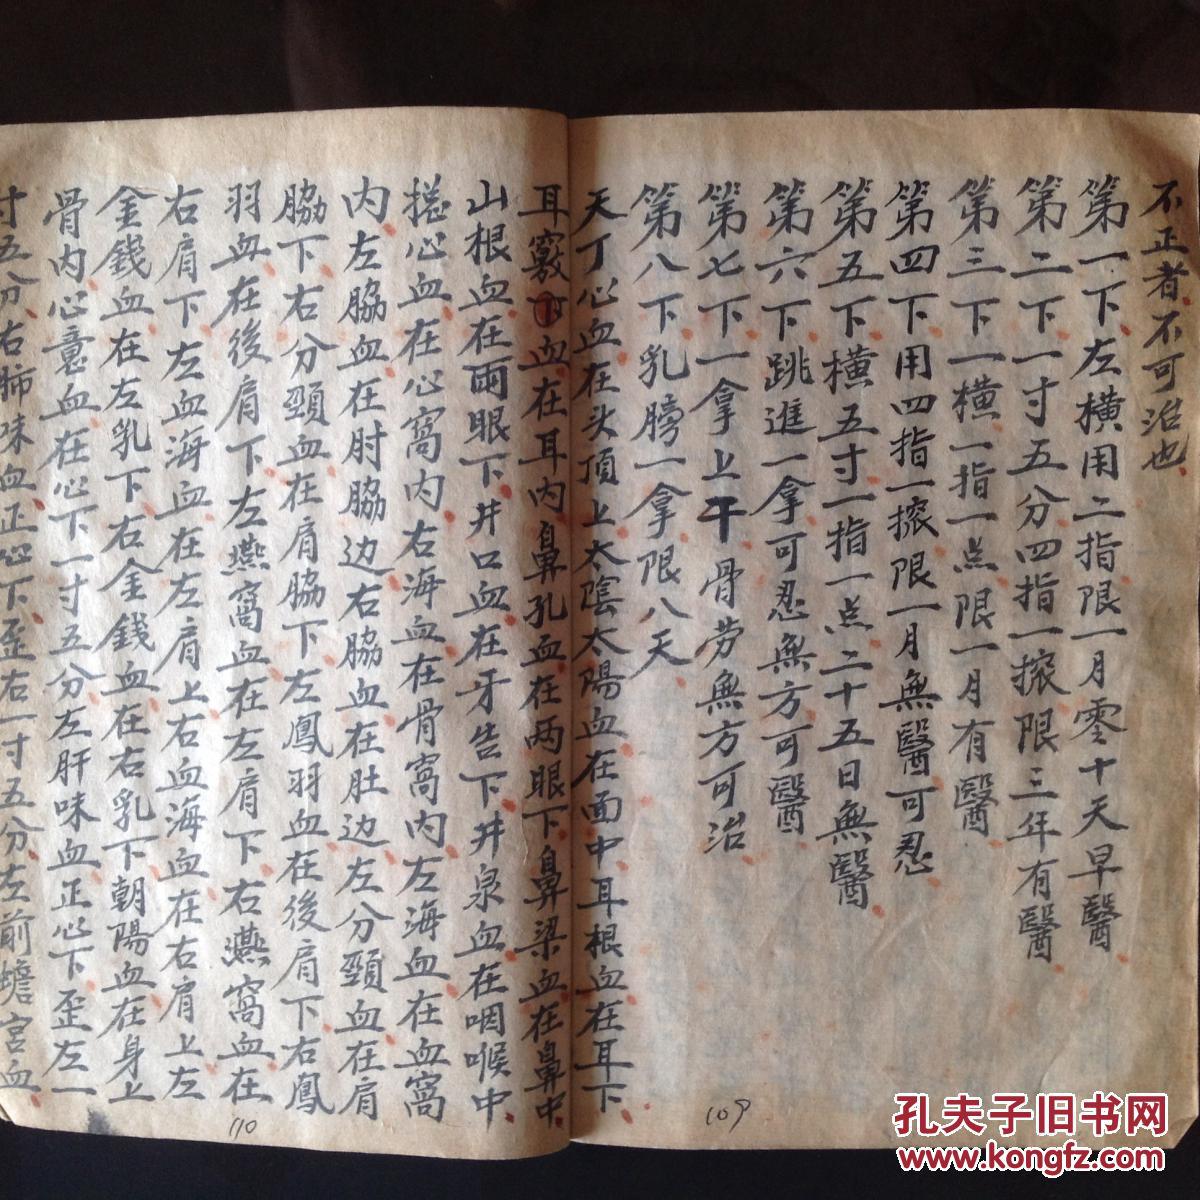 不正者不可治也
第一下左横用二指限一月零十天早醫
第二下一寸五分四指一擦限三年有醫
第三下一横一指一点限一月有醫
第四下用四指一擦限一月無醫可忍
第五下横五寸一指一点二十五日無醫
第六下跳進一拿可忍無方可醫
第七下一拿上干骨劳無方可治
第八下乳膀一拿限八天
天丁心血在头頂上太陰太陽血在面中耳根血在耳下
耳竅下血在耳内鼻孔血在两眼下鼻梁血在鼻中
山根血在兩眼下井口血在牙告下井泉血在咽喉中
搓心血在心窩内右海血在骨窩内左海血在血窩
内左脇血在肘脇边右脇血在肚边左分頸血在肩
脇下右分頸血在肩脇下左鳳羽血在後肩下右鳳
羽血在後肩下左燕窩血在左肩下右燕窩血在
右肩下左血海血在左肩上右血海血在右肩上左
金錢血在左乳下右金錢血在右乳下朝陽血在身上
骨内心意血在心下一寸五分左肝味血正心下歪左一
寸五分右肺味血正心下歪右一寸五分左前蟾宫血
110
109
孔夫子旧书网
www.kongfz.com